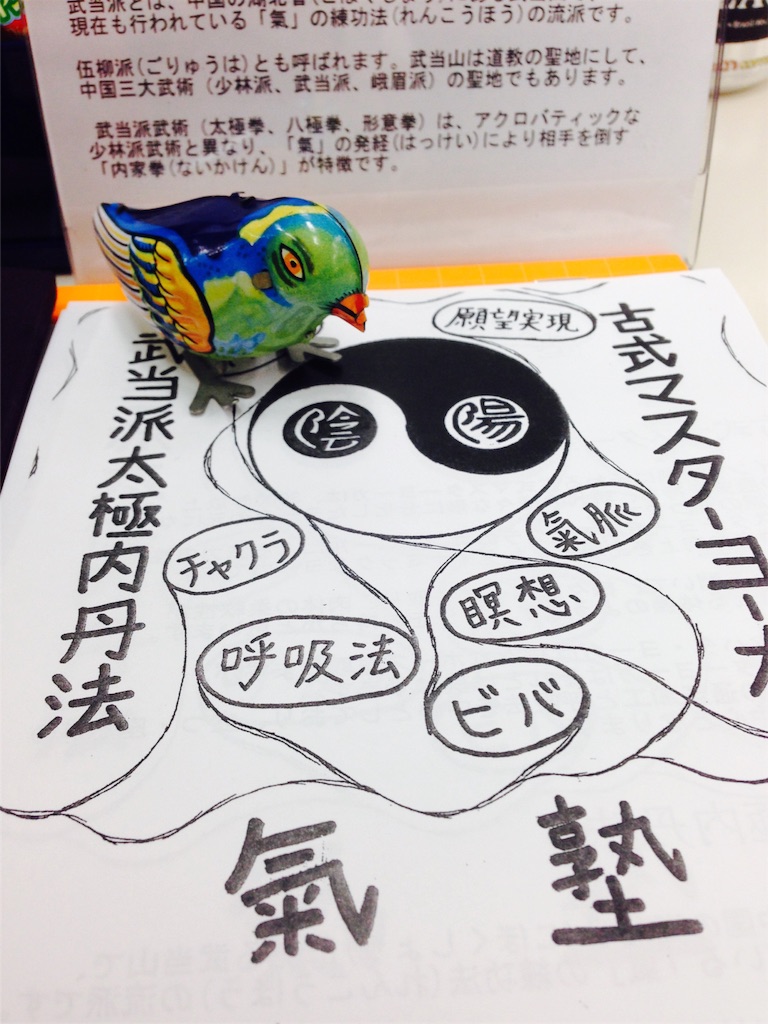 武当派とは、中国の湖北省
現在も行われている「氣」の練功法(れんこうほう)の流派です。
伍柳派(ごりゅうは)とも呼ばれます。武当山は道教の聖地にして、
中国三大武術（少林派、武当派、峨眉派）の聖地でもあります。
武当派武術（太極拳、八極拳、形意拳）は、アクロバティックな
少林派武術と異なり、「氣」の発経(はっけい)により相手を倒す
「内家拳(ないかけん)」が特徴です。
古式マスターヨーガ
願望実現
陰
陽
氣脈
チャクラ
瞑想
呼吸法
ビバ
武当派太極内丹法
氣塾